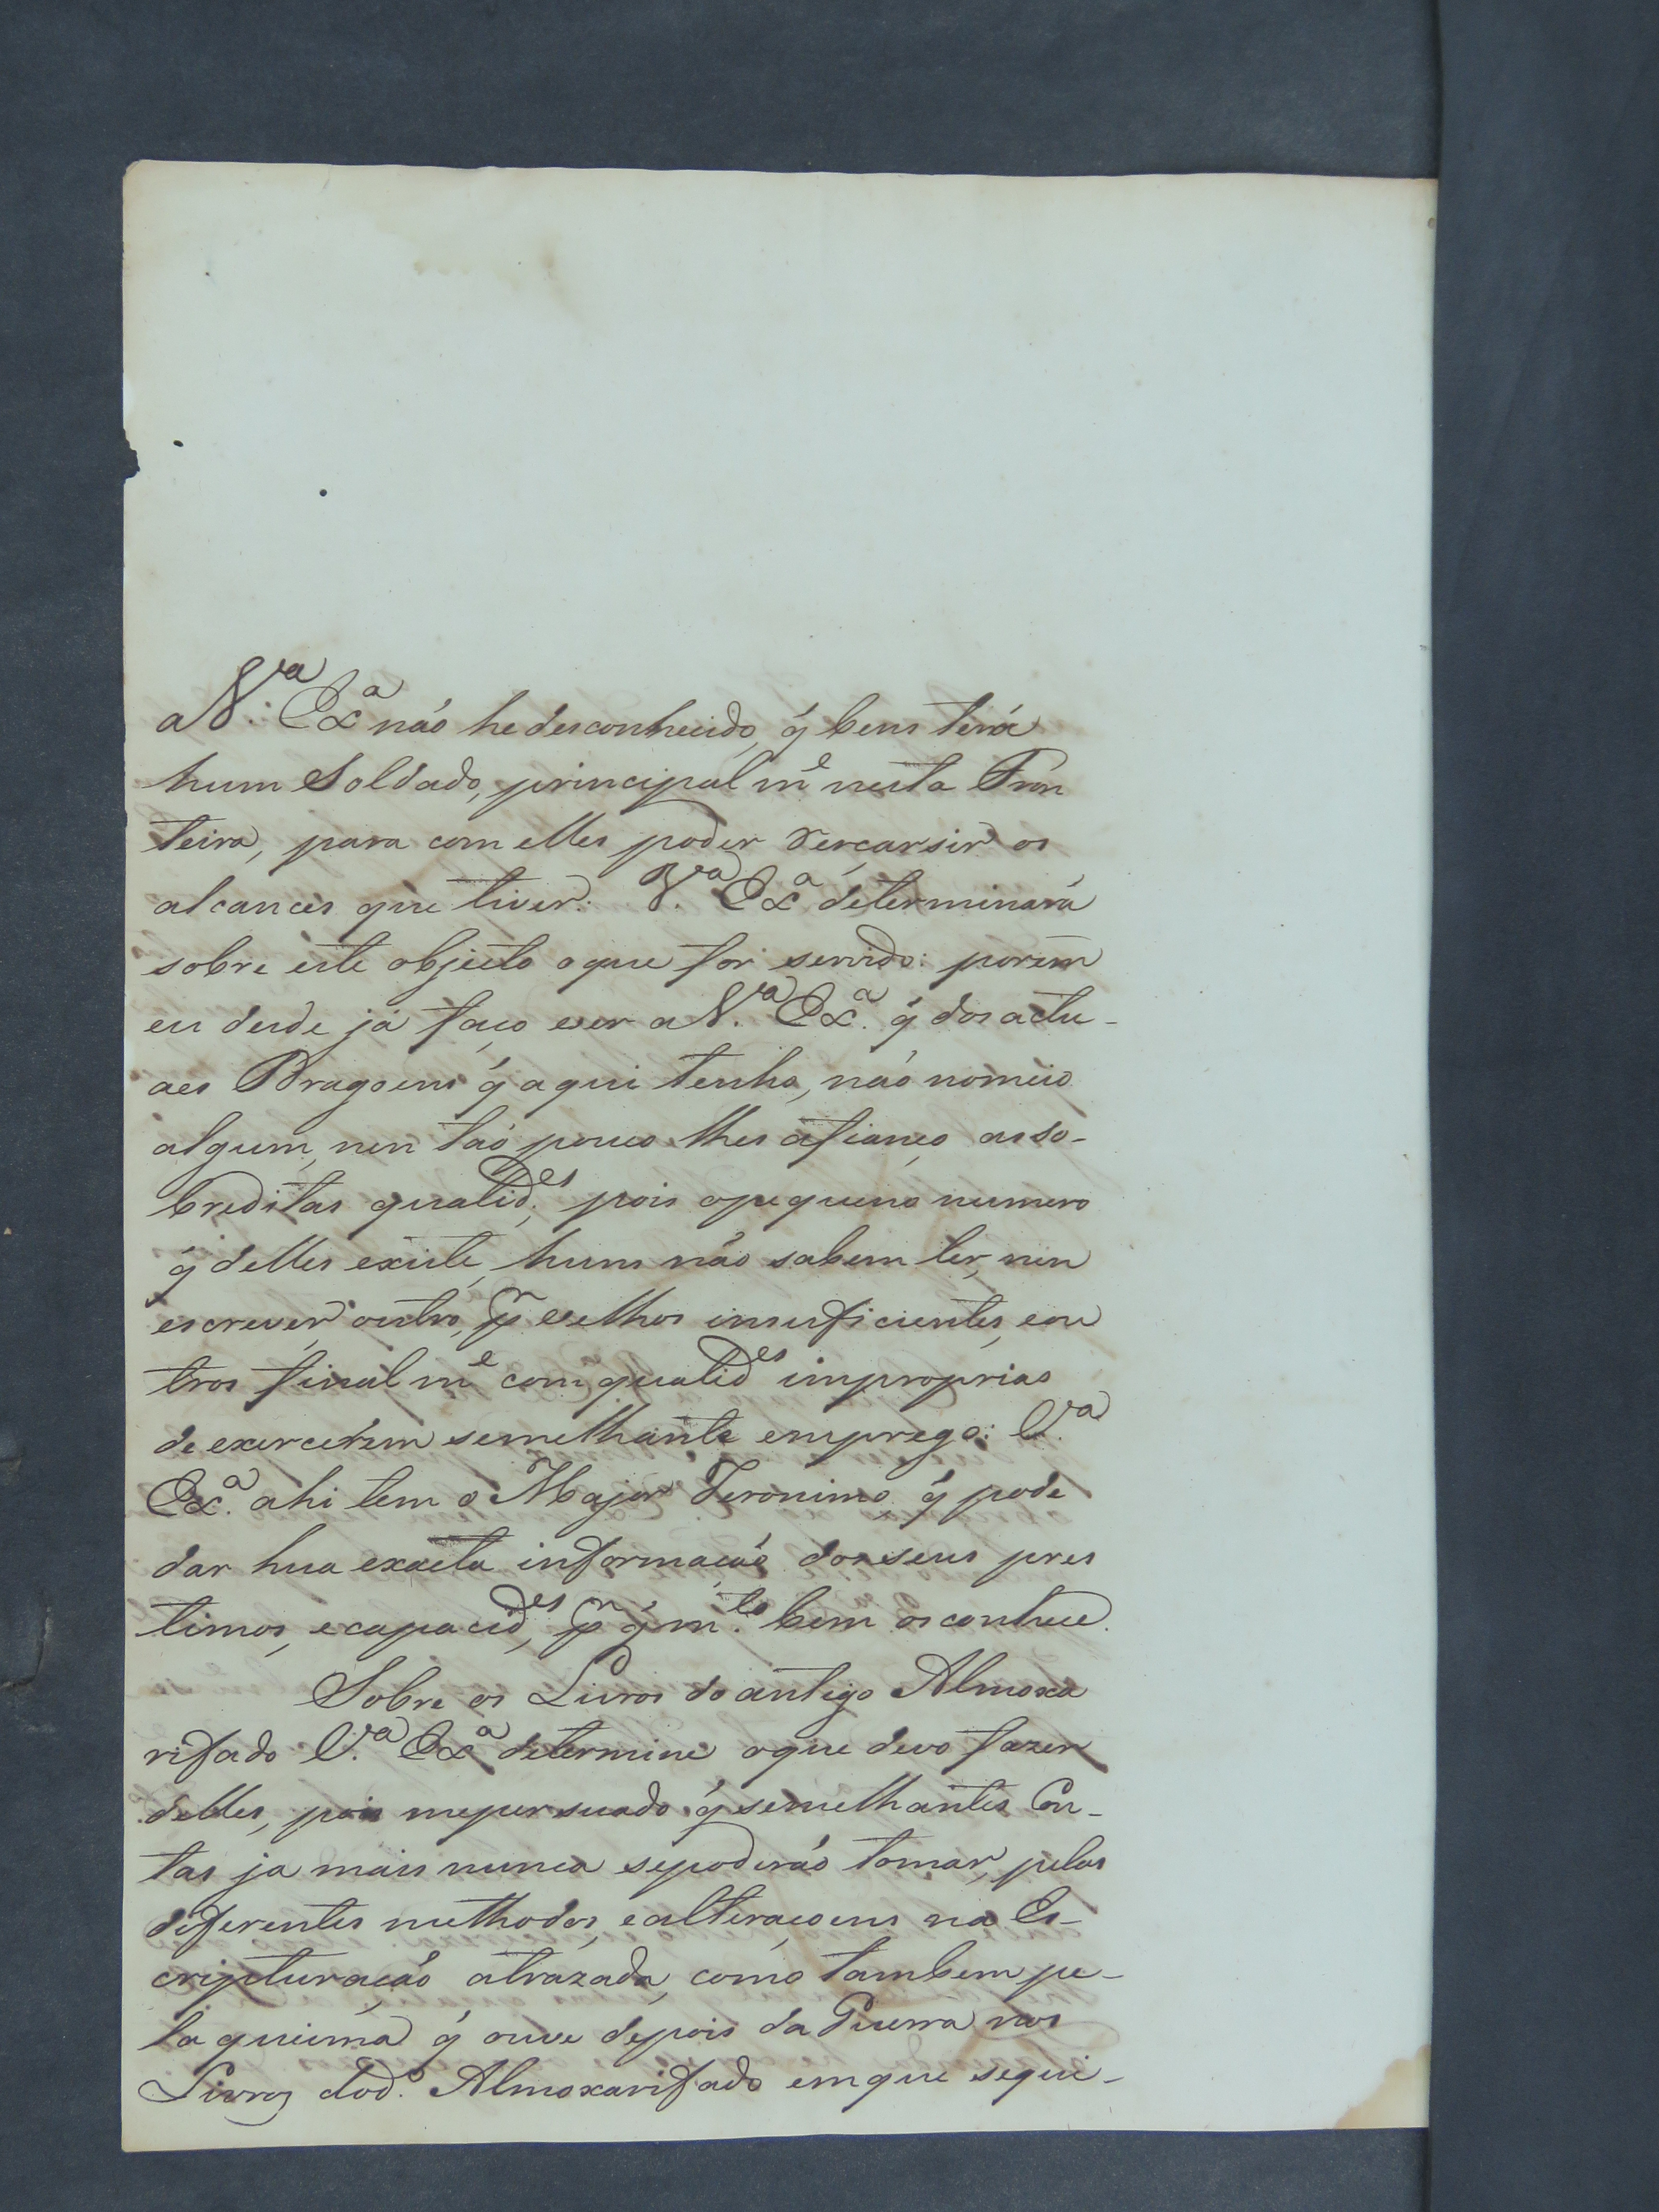 a V.ª Ex.ª não he desconhecido, q̃ bens terá
hum Soldado, principal m.e nesta Fron
teira, para com elles poder rescarsir os
alcances que tiver: V.ª Ex.ª determinará
sobre este objecto oque for servido: porem
eu desde já faço ver a V.ª Ex.ª q̃ dos actu-
aes Dragoens q̃ aqui tenho, não nomeio
algum, nen tão pouco lhes afianço as so-
breditas qualid.es, pois opequeno numero
q̃ delles existe, huns não sabem ler, nen
escrever, outros, p.r velhos insuficientes, eou
tros final m.e com qualid.es improprias
de exercerem semelhante emprego: V.ª
Ex.ª ahi tem o Major Jeronimo q̃ pode
dar hua exacta informação dos seus pres
timos, ecapacid.es, p.r q̃ m.to bem os conhece.
Sobre os Livros do antigo Almoxa
rifado V.ª Ex.ª determine oque devo fazer
delles, pois mepersuado q̃ semelhantes Con-
tas ja mais nunca sepoderáo tomar, pelos
diferentes methodos, ealteraçoens na Es-
cripturação atrazada, como tambem pe-
la queima q̃ ouve depois da Guerra nos
Livros dod.º Almoxarifado emque sequei-